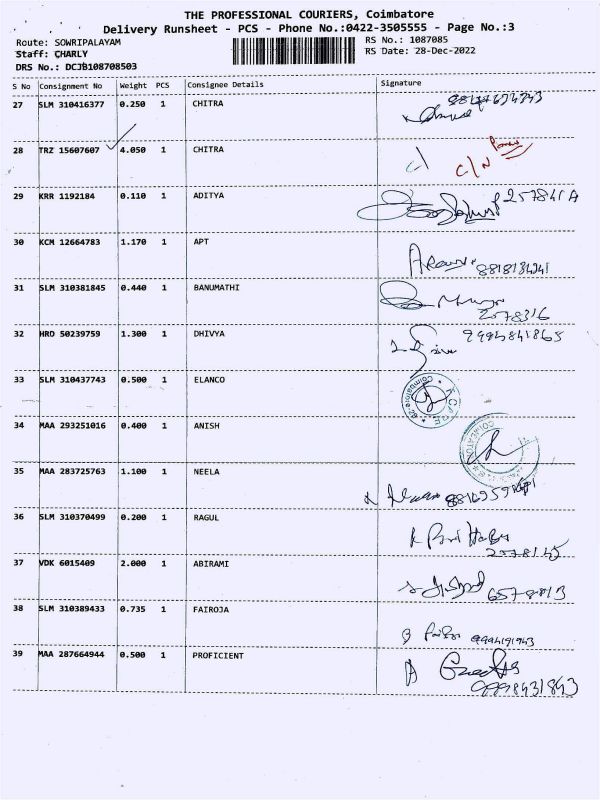 THE PROFESSIONAL COURIERS, Coimbatore
Delivery Runsheet - PCS - Phone No.:0422-3505555 - Page No.:3
Route: SOWRIPALAYAM
RS No.: 1087085
Staff: CHARLY
RS Date: 28-Dec-2022
DRS No.: DCJB108708503
S No Consignment No Weight PCS Consignee Details Signature
27 SLM 310416377 0.250 1 CHITRA
28 TRZ 15607607 4.050 1 CHITRA C/N
29 KRR 1192184 0.110 1 ADITYA 257841A
30 KCM 12664783 1.170 1 APT
31 SLM 310381845 0.440 1 BANUMATHI
2578316
32 HRD 50239759 1.300 1 DHIVYA 9994841865
33 SLM 310437743 0.500 1 ELANCO
34 MAA 293251016 0.400 1 ANISH
35 MAA 283725763 1.100 1 NEELA
36 SLM 310370499 0.200 1 RAGUL
2578145
37 VDK 6015409 2.000 1 ABIRAMI
38 SLM 310389433 0.735 1 FAIROJA
39 MAA 287664944 0.500 1 PROFICIENT